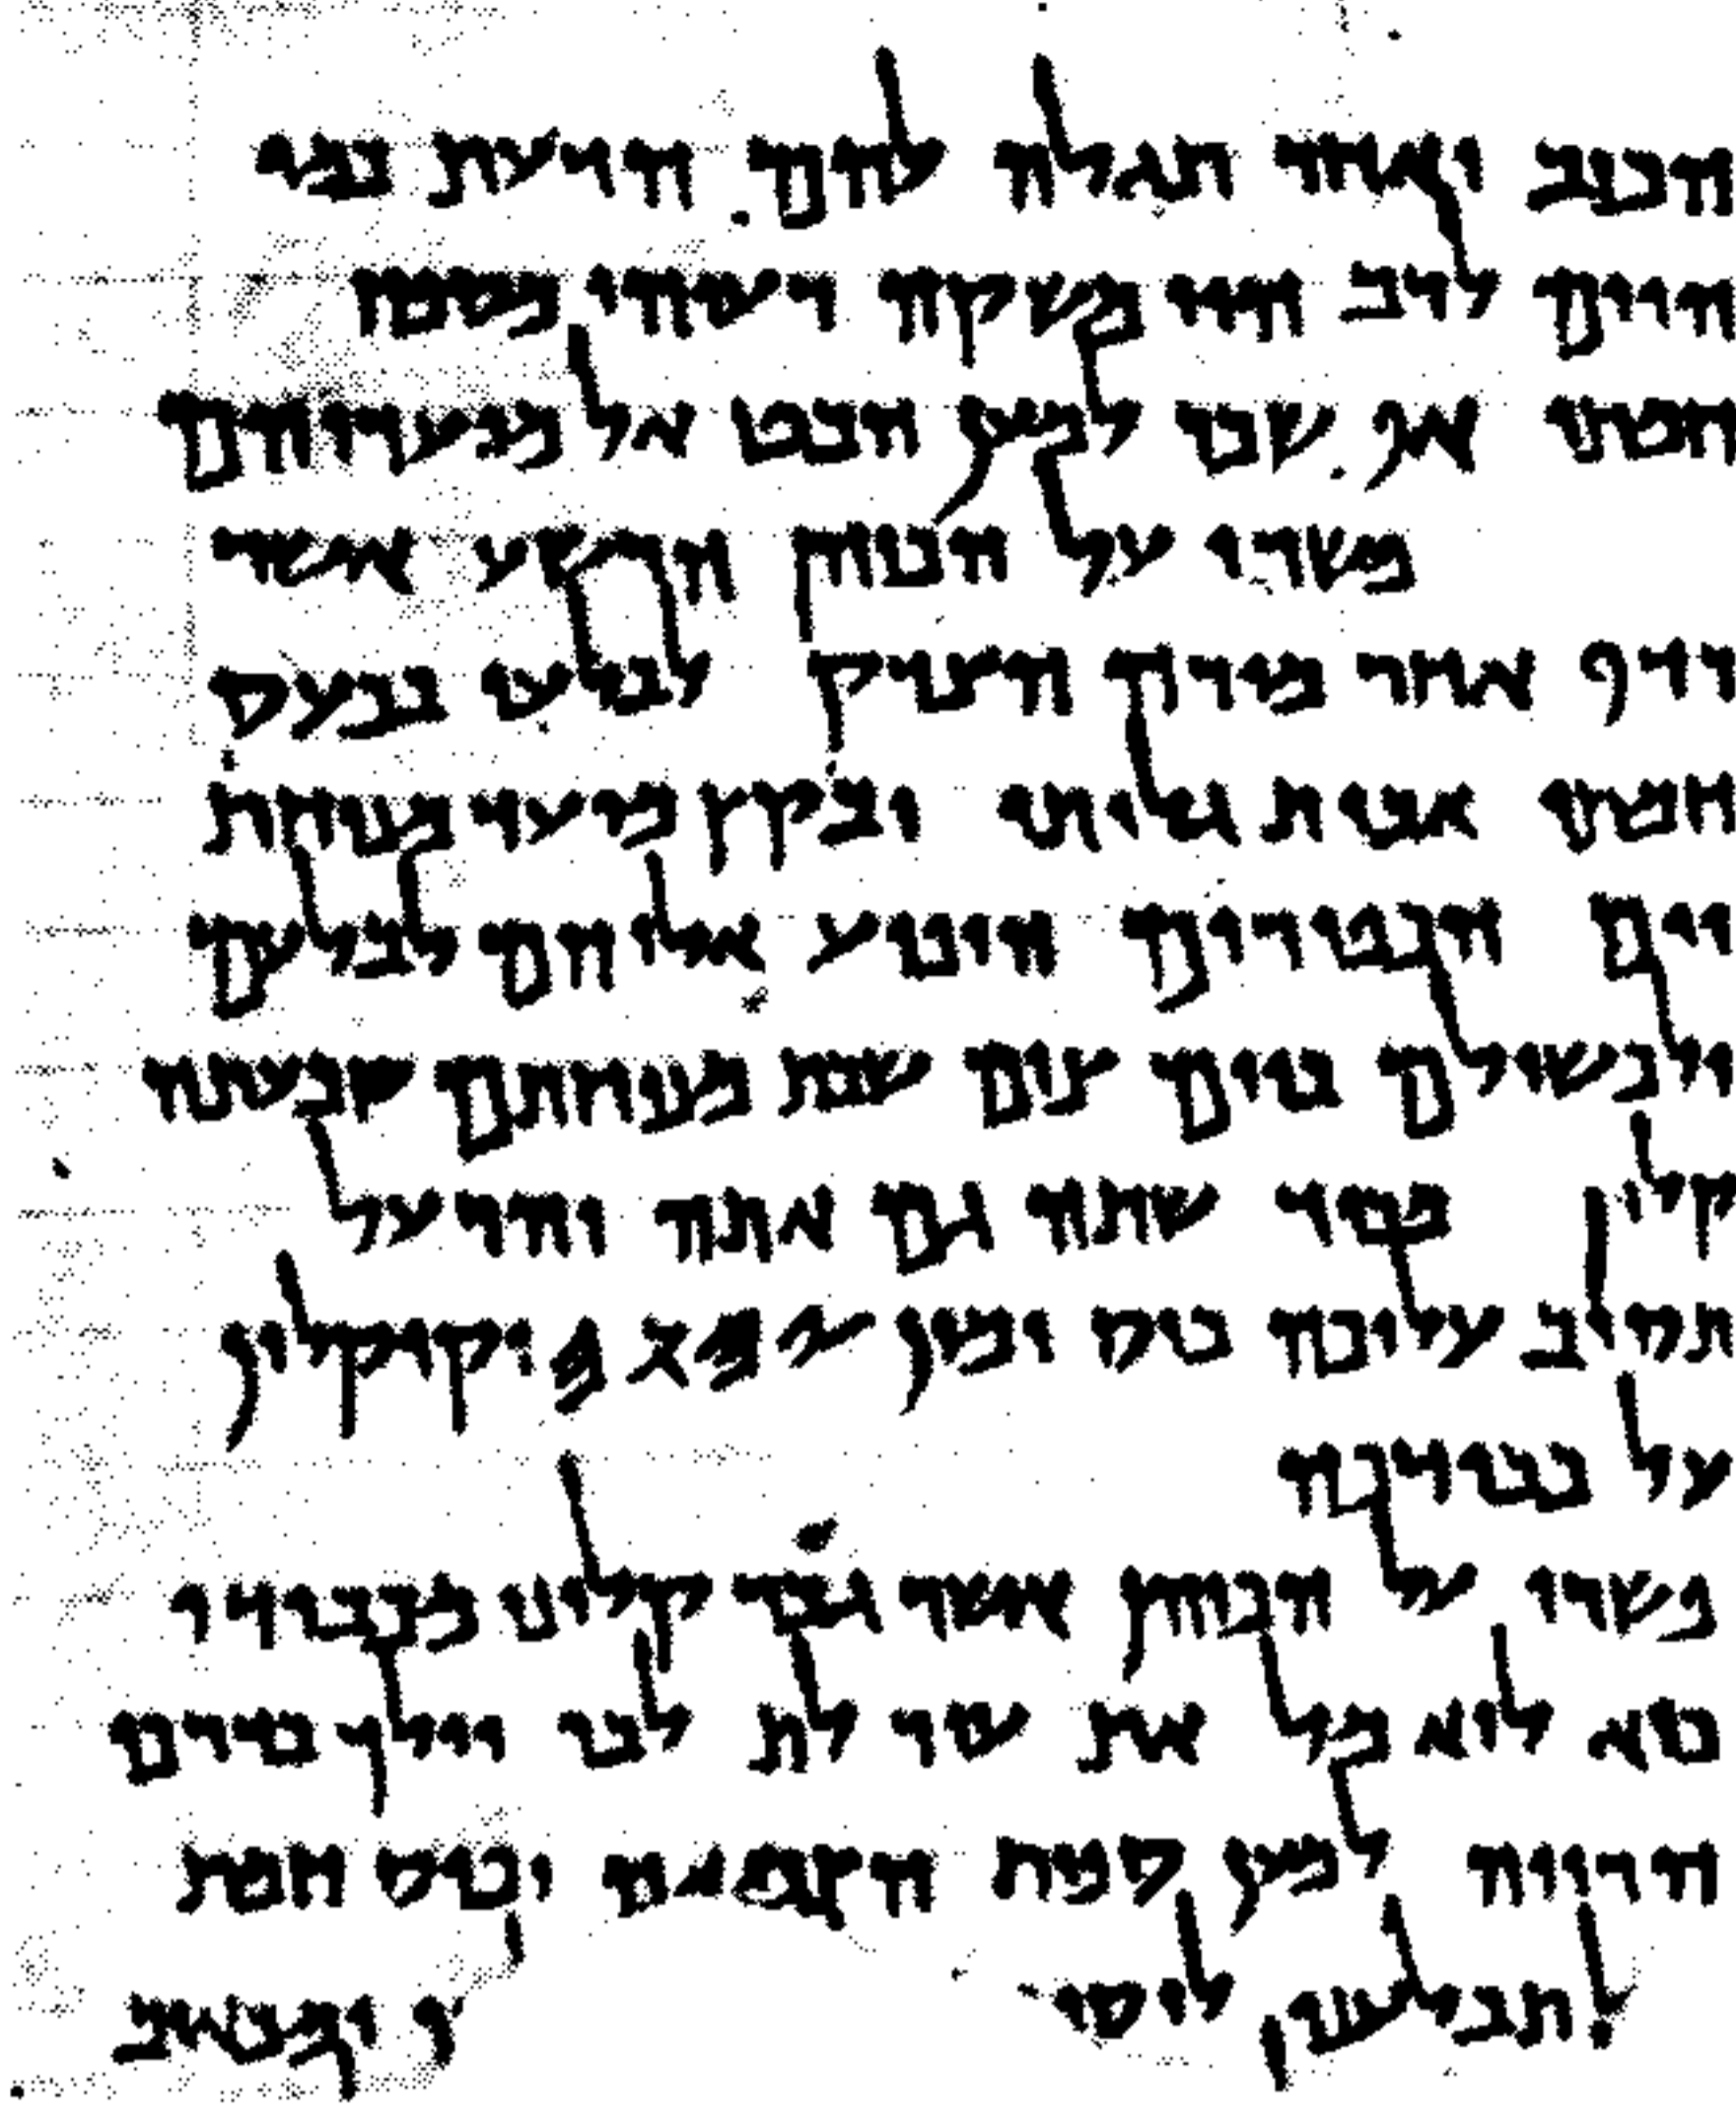 הכזב ואחר תגלה להם הדעת כמי
הים לרב הוי משקה רעיהו מספח
חמתו אף שכר למען הבט אל מועדיהם
פשרו על הכוהן הרשע אשר
רדף אחר מורה הצדק לבלעו בכעס
חמתו אבית גלותו ובקץ מועד מנוחת
יום הכפורים הופיע אליהם לבלעם
ולכשילם ביום צום שבת מנוחתם שבעתה
קלון מכבוד שתה גם אתה והרעל
תסוב עליכה כוס ימין 𐤉𐤄𐤅𐤄 וקיקלון
על כבודכה
פשרו על הכוהן אשר גבר קלונו מכבודו
כיא לוא מל את עורלת לבו וילך בדרכי
הרויה למען ספות הצמאה וכוס חמת
ל תבלענו לוסי ו ומכאוב